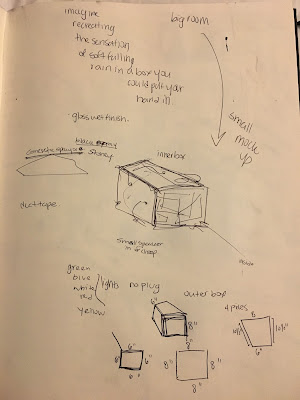 imagine
recreating
the sensation
of soft falling
rain in a box you
could put your
hand in
big room
small
mock
up
gloss wet finish.
black spray
stoney
inner box
duct tape.
small speaker
in it cheap
green
blue
white
red
yellow
lights
no plug
outer box
4 pieces
6"
8"
8"
6"
6"
8"
8"
8"
8"
6"